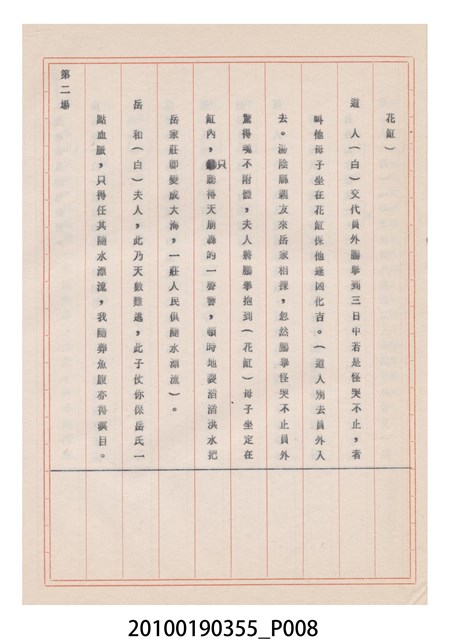 花缸）
道　人（白）交代員外鵬擧到三日中若是怪哭不止，者
叫他母子坐在花缸保他逢凶化吉。（道人別去員外入
去。湯陰縣親友來岳家相探，忽然鵬擧怪哭不止員外
驚得魂不附體，夫人將鵬擧抱到（花缸）母子坐定在
缸內，只聽得天崩的一聲響，頓時地裂滔滔洪水把
岳家莊即變成大海，一莊人民俱隨水漂流）。
岳　和（白）夫人，此乃天數難逃，此子仗你保岳氏一
點血脈，只得任其隨水漂流，我隨葬魚腹亦得瞑目。
第二場
20100190355_P008